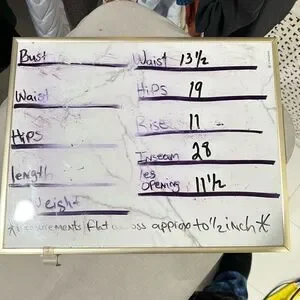 Bust
Waist
Hips
length
Weight
Waist 13 1/2
Hips 19
Rise 11
Inseam 28
leg
Opening 11 1/2
*Measurements flat across approx to 1/2 inch*